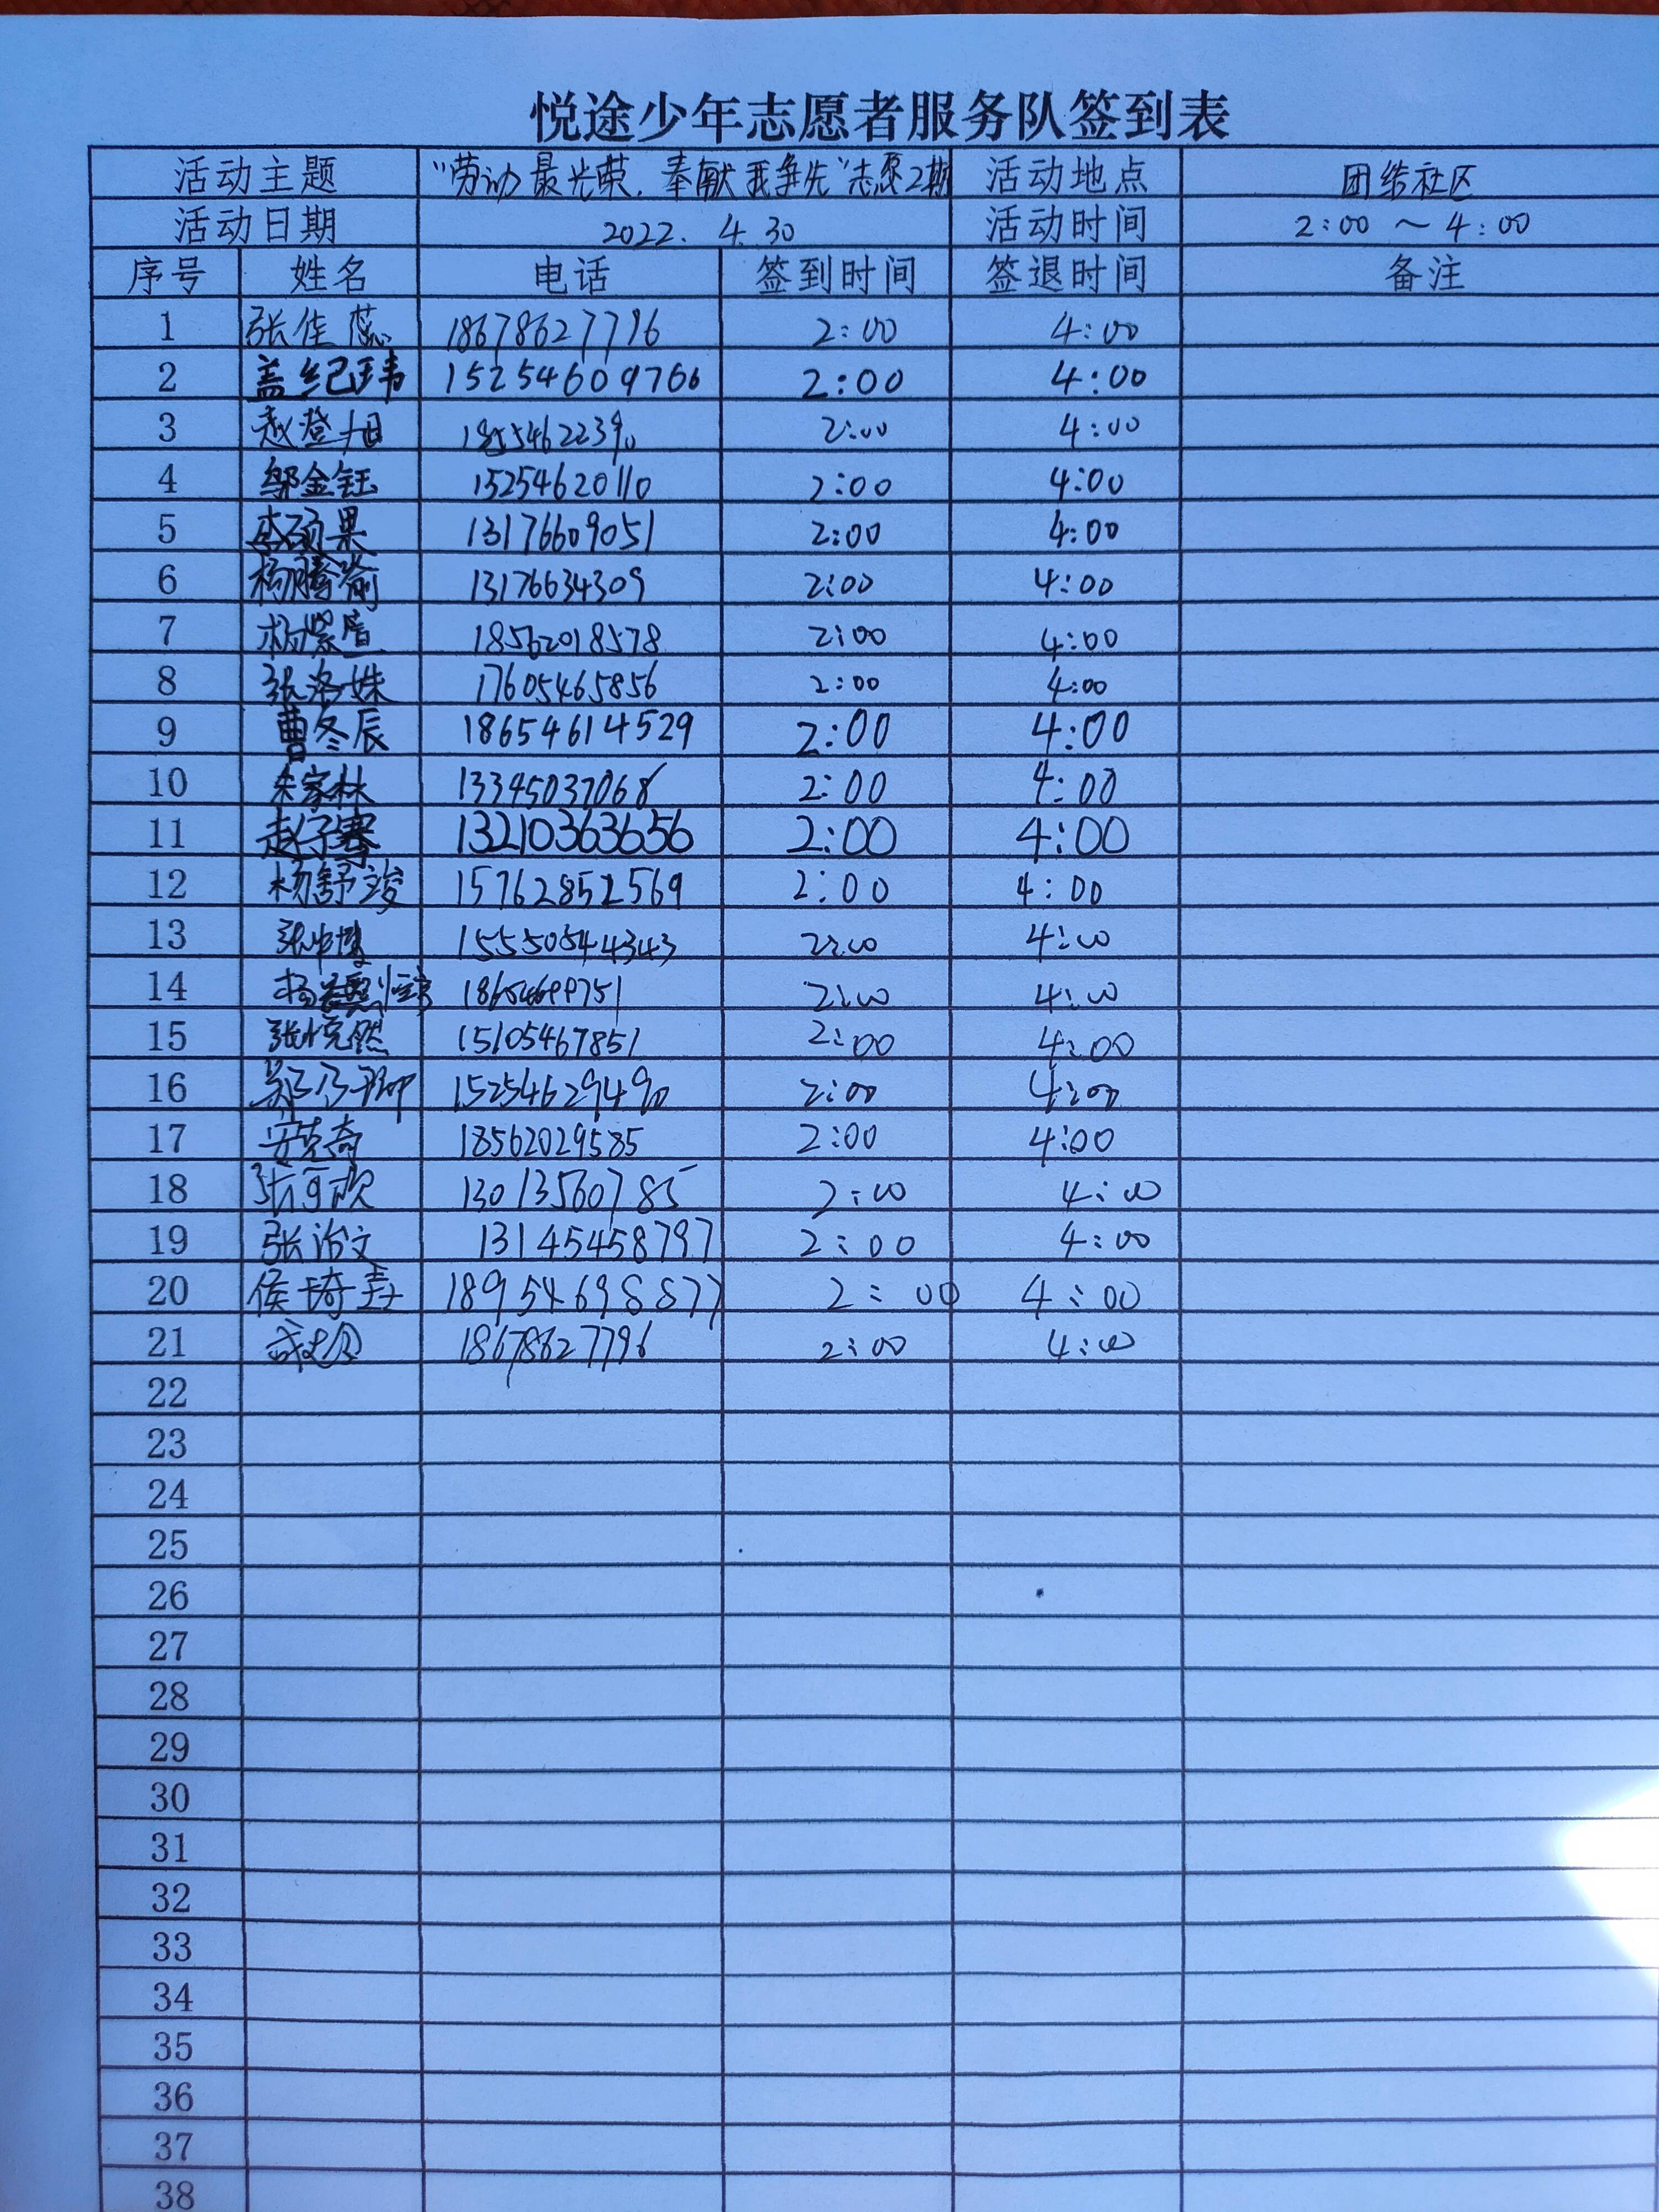 悦途少年志愿者服务队签到表
活动主题 "劳动最光荣.奉献我争先"志愿2期 活动地点 团结社区
活动日期 2022. 4.30 活动时间 2:00 ~ 4:00
序号 姓名 电话 签到时间 签退时间 备注
1 张佳蕊 18678627796 2:00 4:00
2 盖纪玮 15254609766 2:00 4:00
3 赵登旭 18554622390 2:00 4:00
4 邬金钰 15254620110 2:00 4:00
5 李硕果 13176609051 2:00 4:00
6 杨腾喻 13176634309 2:00 4:00
7 18562018578 2:00 4:00
8 张洛姝 17605465856 2:00 4:00
9 曹冬辰 18654614529 2:00 4:00
10 朱家林 13345037068 2:00 4:00
11 赵子骞 13210363656 2:00 4:00
12 杨舒竣 15762852569 2:00 4:00
13 15550544343 2:00 4:00
14 2:00 4:00
15 张悦然 15105467851 2:00 4:00
16 15254629490 2:00 4:00
17 安克奇 18562029585 2:00 4:00
18 张可欣 13013560785 2:00 4:00
19 张治文 13145458797 2:00 4:00
20 侯琦壵 18954698877 2:00 4:00
21 18678627796 2:00 4:00
22
23
24
25
26
27
28
29
30
31
32
33
34
35
36
37
38